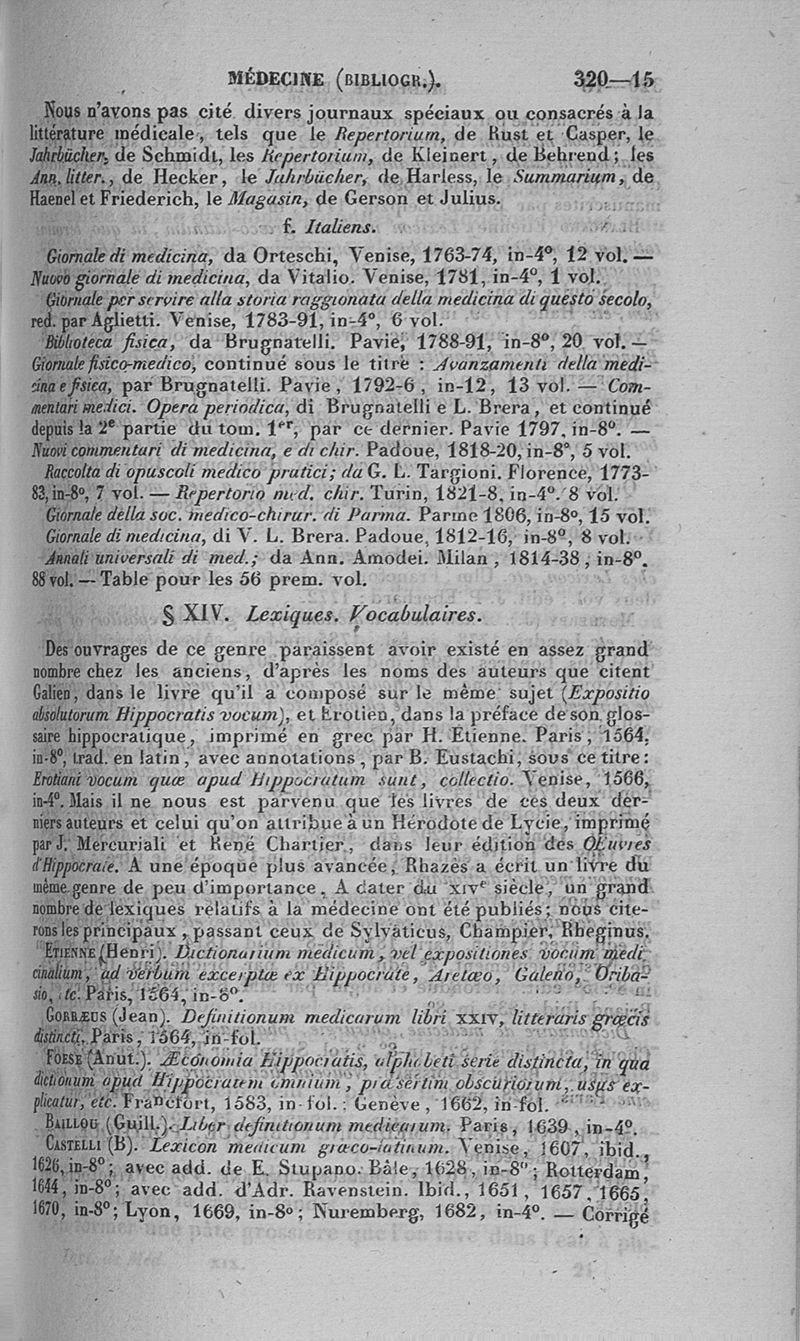 MÉDECINE (BIBLIOGR.). 320—15
Nous n'avons pas cité divers journaux spéciaux ou consacrés à la
littérature médicale, tels que le Repertorium, de Rust et Casper, le
Jahrbücher, de Schmidt, les Repertorium, de Kleinert, de Behrend; les
Ann. litter., de Hecker, le Jahrbücher, de Harless, le Summarium, de
Haenel et Friederich, le Magasin, de Gerson et Julius.
f. Italiens.
Giornale di medicina, da Orteschi, Venise, 1763-74, in-4°, 12 vol. —
Nuovo giornale di medicina, da Vitalio. Venise, 1781, in-4°, 1 vol.
Giornale per servire alla storia raggionata della medicina di questo secolo,
red. par Aglietti. Venise, 1783-91, in-4°, 6 vol.
Biblioteca fisica, da Brugnatelli. Pavie, 1788-91, in-8°, 20 vol. —
Giornale fisico-medico, continué sous le titre : Avanzamenti della medi-
cina e fisica, par Brugnatelli. Pavie, 1792-6, in-12, 13 vol. — Com-
mentari medici. Opera periodica, di Brugnatelli e L. Brera, et continué
depuis la 2e partie du tom. 1er, par ce dernier. Pavie 1797, in-8°. —
Nuovi commentari di medicina, e di chir. Padoue, 1818-20, in-8°, 5 vol.
Raccolta di opuscoli medico pratici; da G. L. Targioni. Florence, 1773-
83, in-8°, 7 vol. — Repertorio med. chir. Turin, 1821-8, in-4°. 8 vol.
Giornale della soc. medico-chirur. di Parma. Parme 1806, in-8°, 15 vol.
Giornale di medicina, di V. L. Brera. Padoue, 1812-16, in-8°, 8 vol.
Annali universali di med.; da Ann. Amodei. Milan, 1814-38, in-8°.
88 vol. — Table pour les 56 prem. vol.
§ XIV. Lexiques. Vocabulaires.
Des ouvrages de ce genre paraissent avoir existé en assez grand
nombre chez les anciens, d'après les noms des auteurs que citent
Galien, dans le livre qu'il a composé sur le même sujet (Expositio
absolutorum Hippocratis vocum), et Erotien, dans la préface de son glos-
saire hippocratique, imprimé en grec par H. Étienne. Paris, 1564,
in-8°, trad. en latin, avec annotations, par B. Eustachi, sous ce titre:
Erotiani vocum quæ apud Hippocratum sunt, collectio. Venise, 1566,
in-4°. Mais il ne nous est parvenu que les livres de ces deux der-
niers auteurs et celui qu'on attribue à un Hérodote de Lycie, imprimé
par J. Mercuriali et René Chartier, dans leur édition des OEuvres
d'Hippocrate. A une époque plus avancée, Rhazès a écrit un livre du
même genre de peu d'importance. A dater du XIVe siècle, un grand
nombre de lexiques relatifs à la médecine ont été publiés; nous cite-
rons les principaux, passant ceux de Sylvaticus, Champier, Rheginus.
ÉTIENNE (Henri). Dictionarium medicum, vel expositiones vocum medi-
cinalium, ad verbum excerptæ ex Hippocrate, Aretæo, Galeno, Oriba-
sio, etc. Paris, 1564, in-8°.
GORRÆUS (Jean). Definitionum medicarum libri XXIV, litteraris græcis
distincti, Paris, 1564, in-fol.
FOESE (Anut.). Æconomia Hippocratis, alphabeti serie distincta, in qua
dictionum apud Hippocratem omnium, præsertim obscuriorum, usus ex-
plicatur, etc. Francfort, 1583, in-fol.; Genève, 1662, in-fol.
BAILLOU (Guill.). Liber definitionum medicarum. Paris, 1639, in-4°.
CASTELLI (B). Lexicon medicum græco-latinum. Venise, 1607, ibid.,
1626, in-8°; avec add. de E. Stupano. Bâle, 1628, in-8°; Rotterdam,
1644, in-8°; avec add. d'Adr. Ravenstein. Ibid., 1651, 1657, 1665,
1670, in-8°; Lyon, 1669, in-8°; Nuremberg, 1682, in-4°. — Corrigé